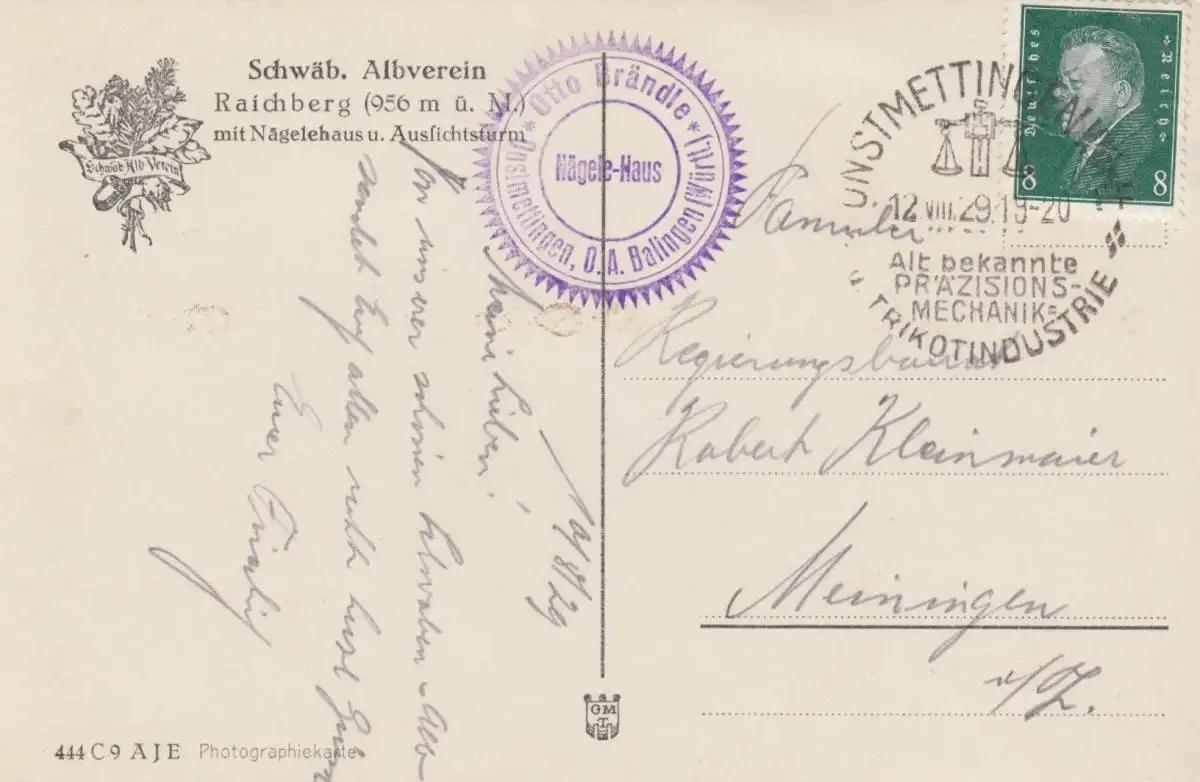 Schwäb. Albverein
Raichberg (956 m ü. M.)
mit Nägelehaus u. Aussichtsturm
Schwäb. Alb Verein
* Otto Brändle *
Onstmettingen, O.A. Balingen (Württ.)
Nägele-Haus
Deutsches Reich
8 8
ONSTMETTINGEN
12.VIII.29.19-20
Alt bekannte
PRÄZISIONS-
MECHANIK=
TRIKOTINDUSTRIE
Familie
Regierungsbaurat
Robert Kleinmaier
Meiningen
/Z.
/8/29
Meine Lieben!
Von unserer schönen Schwaben-Alb
sendet Euch allen recht herzl.
Euer
GM
T
444 C 9 AJE Photographiekarte